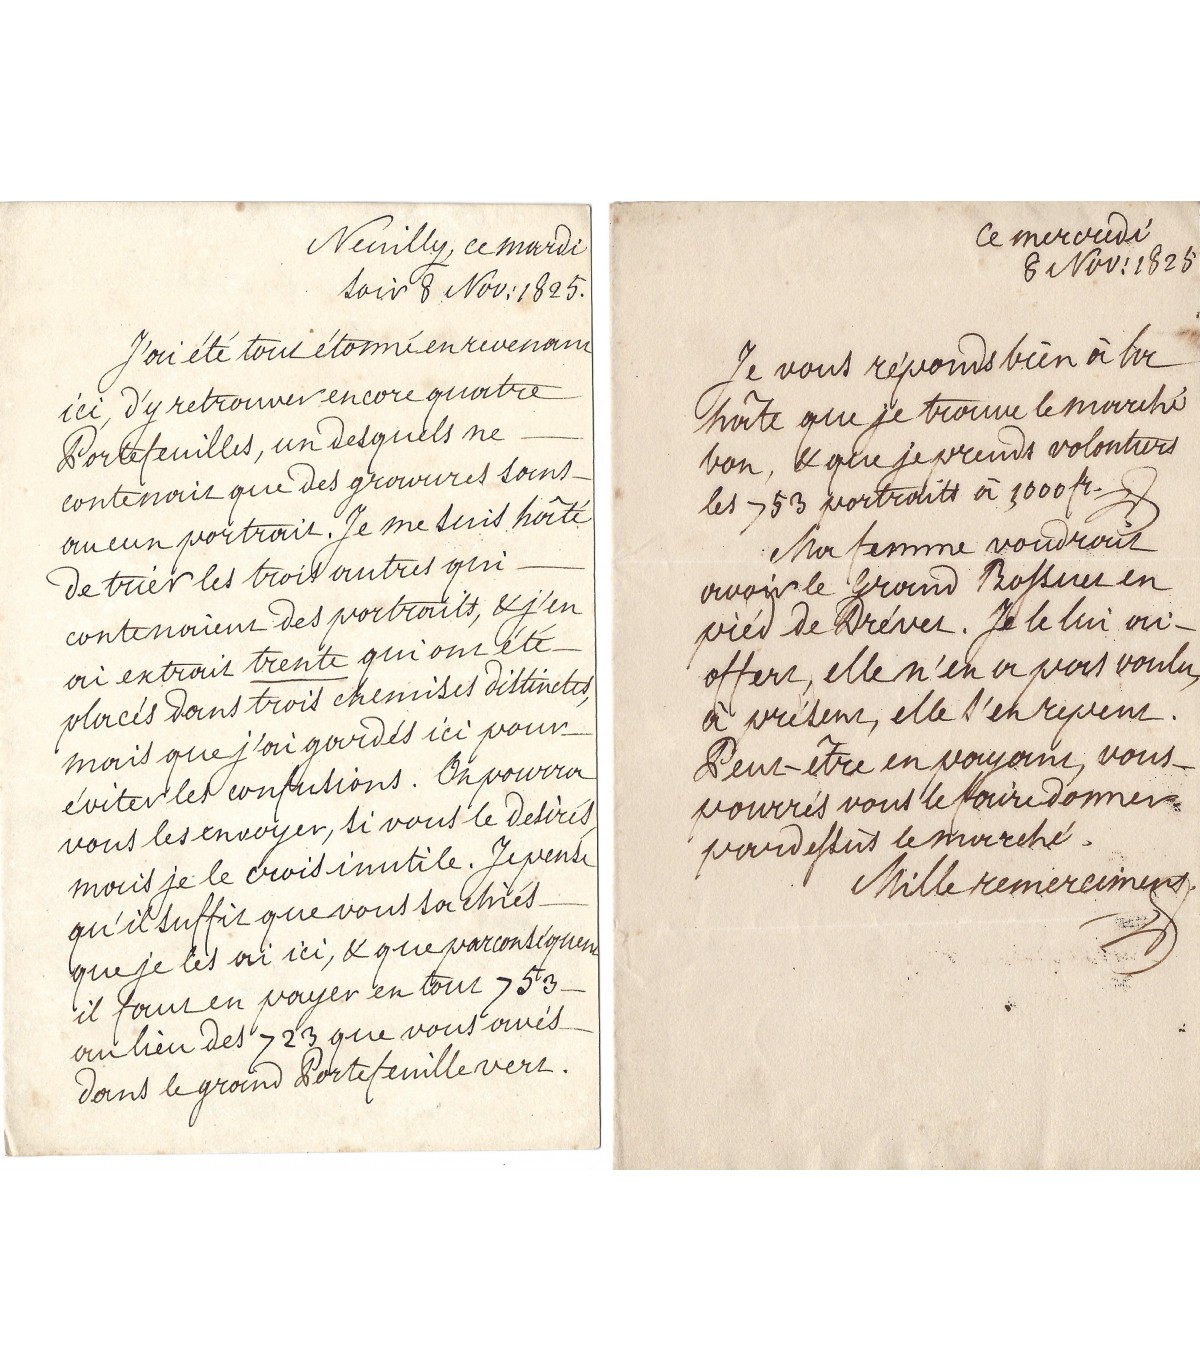 Neuilly, ce mardi
soir 8 Nov: 1825.
J'ai été tout étonné en revenant
ici, d'y retrouver encore quatre
Portefeuilles, un desquels ne —
contenait que des gravures sans —
aucun portrait. Je me suis hâté
de trier les trois autres qui —
contenaient des portraits, & j'en
ai extrait trente qui ont été —
placés dans trois chemises distinctes,
mais que j'ai gardés ici pour —
éviter les confusions. On pourra
vous les envoyer, si vous le desirés,
mais je le crois inutile. Je pense
qu'il suffit que vous sachiés —
que je les ai ici, & que parconséquent
il faut en payer en tout 753 —
au lieu des 723 que vous avés —
dans le grand Portefeuille vert.
Ce mercredi
8 Nov: 1825
Je vous réponds bien à la
hâte que je trouve le marché
bon, & que je prends volontiers
les 753 portraits à 3000 fr.
Ma femme voudrait
avoir le Grand Bossuet en
piéd de Drévet. Je le lui ai —
offert, elle n'en a pas voulu,
à présent, elle s'en repent.
Peut-être en payant, vous —
pourrés vous le faire donner
pardessus le marché.
Mille remercimens.